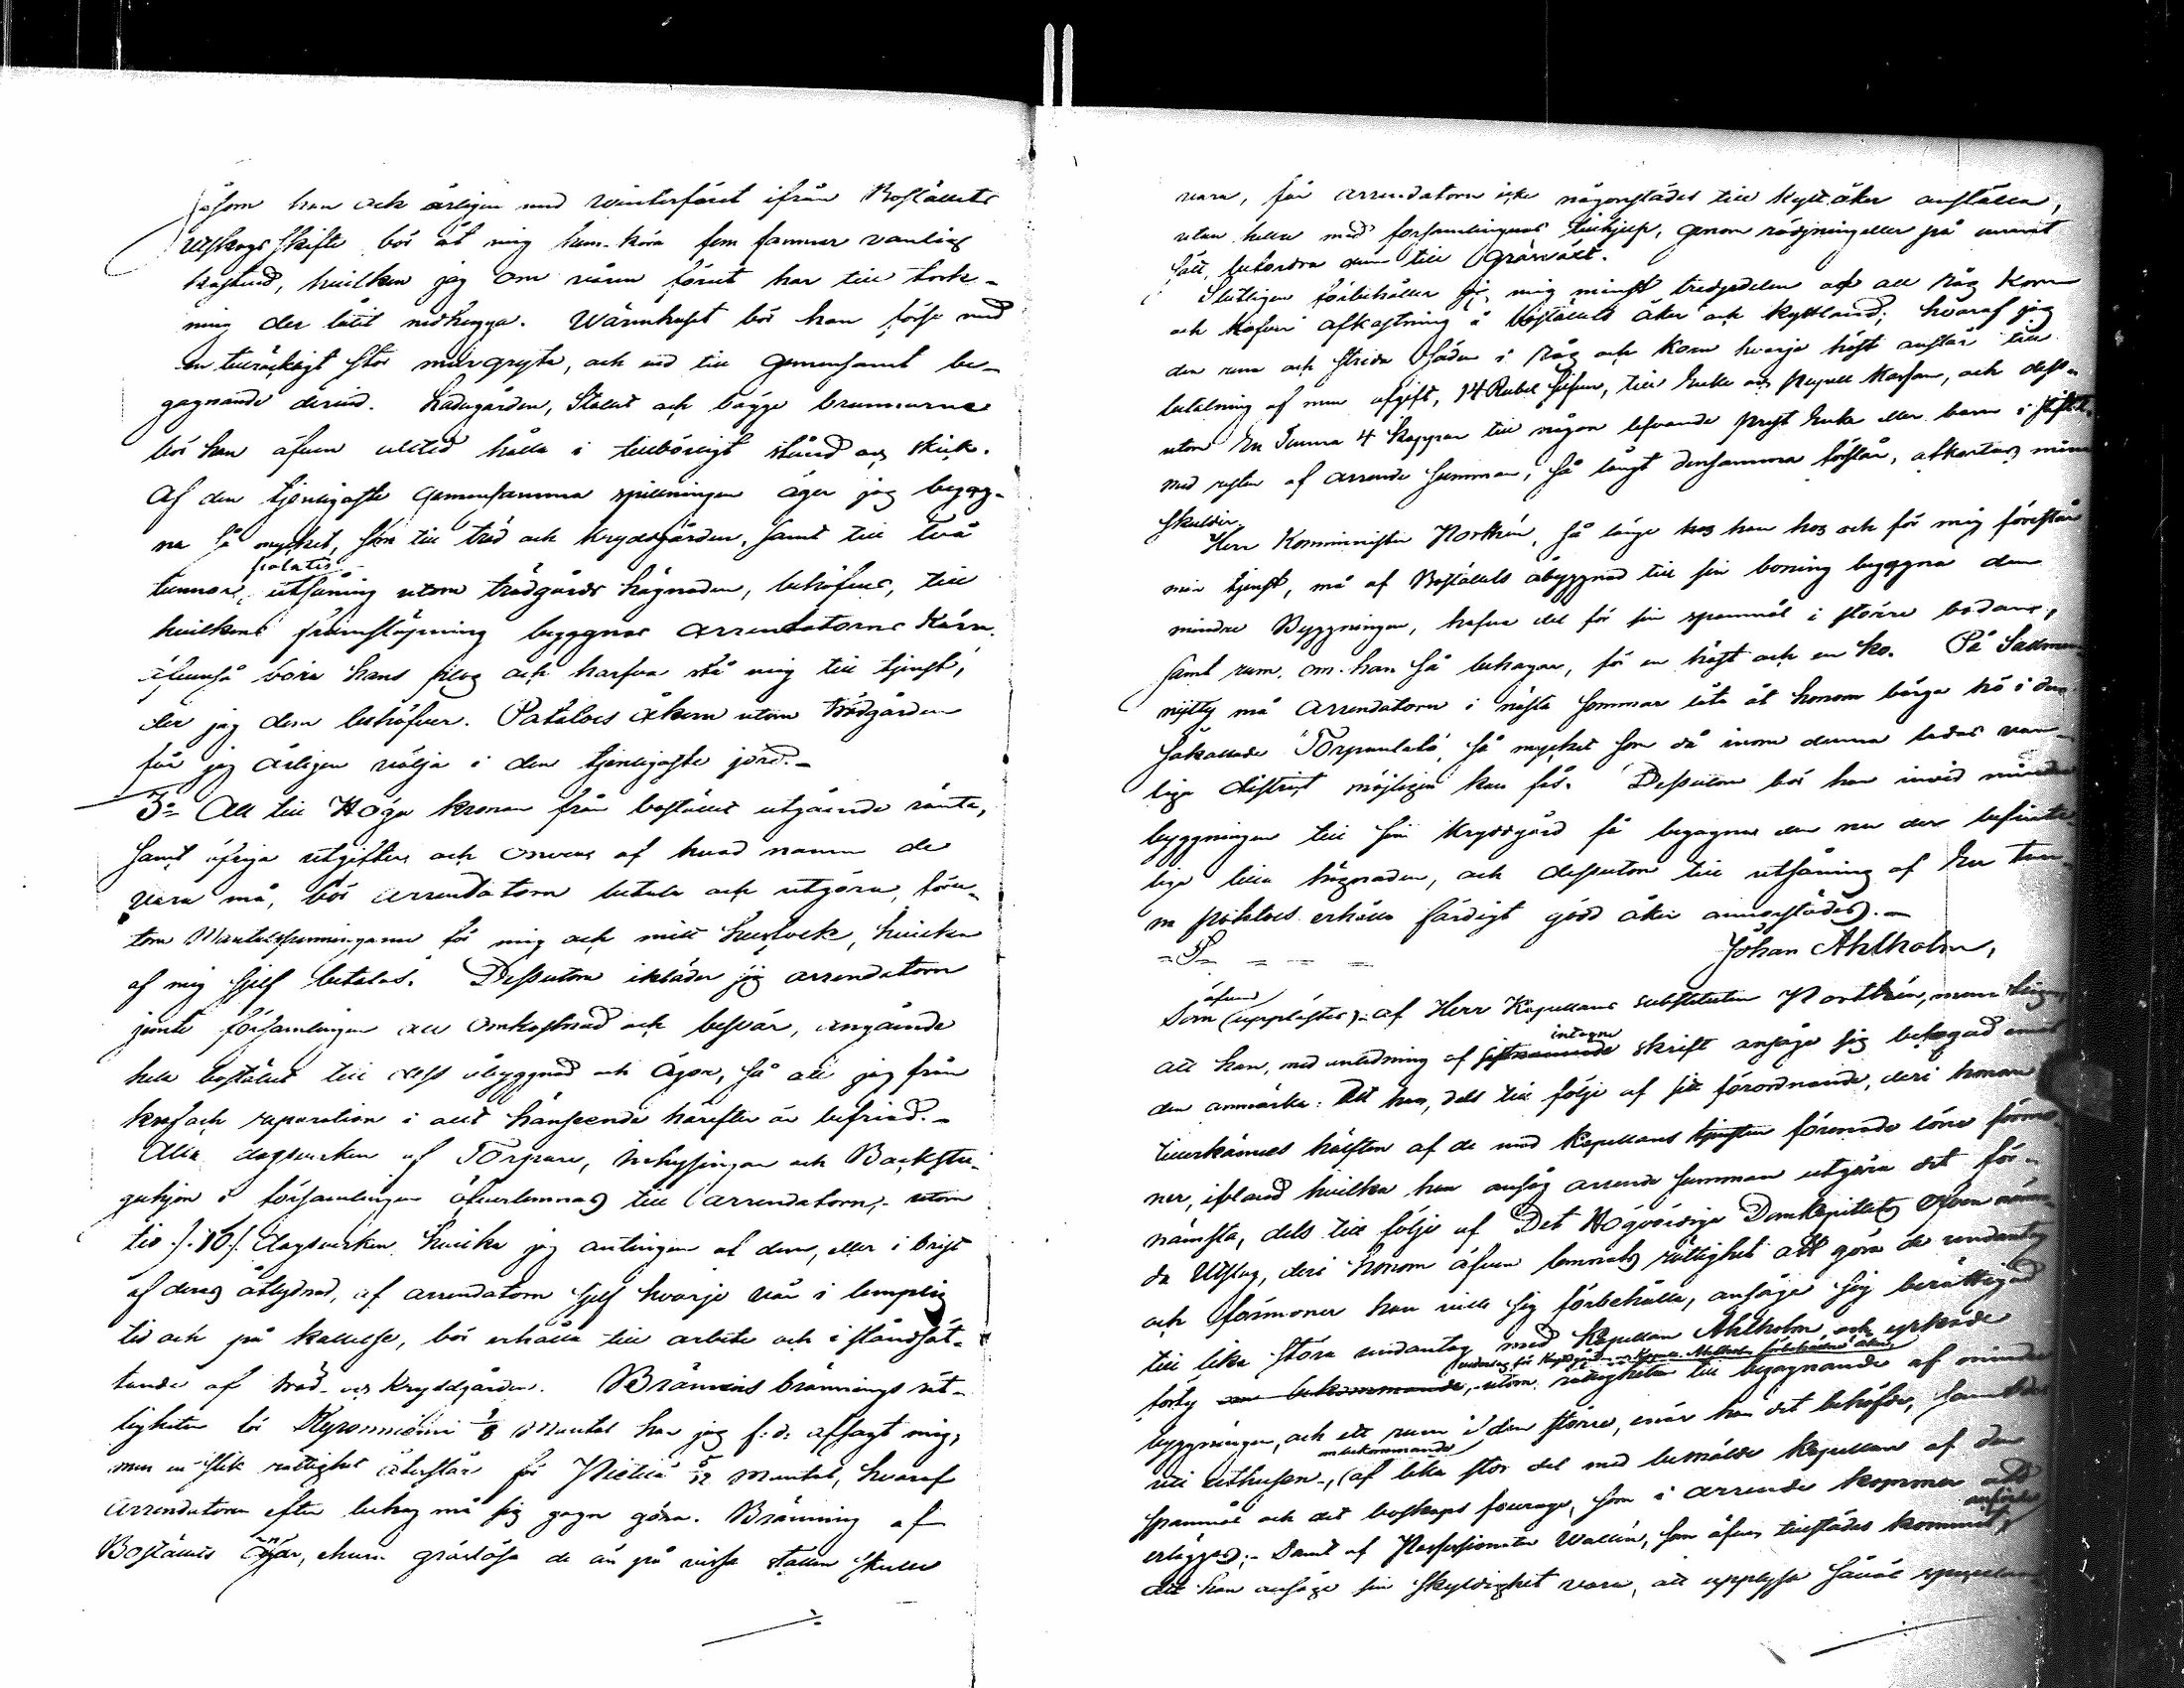 som han ock årligen med vinterföret ifrån Boställets
Utskogs Skifte bör åt mig hem-köra fem famnar vanlig
kastved, hvilken jag om våren förut har till tork-
ning der låtit nedhugga. Wärmhuset bör han förse med
en tillräckligt stor murgryta, och ved till gemensamt be-
gagnande derwid. Ladugården, Stallet och bägge brunnarne
bör han äfven alltid hålla i tillbörligt stånd och skick.
Af den tjenligaste gemensamma spillningen äger jag begag-
na så mycket, som till träd och Kryddgården, samt till två
tunnors potatis utsåning utom trädgårds hägnaden, behöfves, till
hvilkens framsläpning begagnas arrendatorns Kärra.
äfvenså böra hans plog och harfva stå mig till tjenst,
der jag dem behöfver. Patatoes åkern utom trädgården
får jag årligen välja i den tjenligaste jord.-
3:o All till Höga kronan från bostället utgående ränta,
samt öfriga utgifter och onera af hvad namn de
vara må, bör arrendatorn betala och utgöra, föru-
tom Mantalspenningarne för mig och mitt husfolk, hvilka
af mig sjelf betalas. Dessutom ikläder jag arrendatorn
jemte församlingen all omkostnad och besvär, angående
hela bostället till dess åbyggnad och ägor, så att jag från
kraf och reparation i allt hänseende härefter är befriad.-
Alla dagsverken af Torpare, Inhysingar och Backstu-
guhjon i församlingen öfverlemnas till arrendatorn,- utom
tio ./.10./. dagsverken hvilka jag antingen af dem, eller i brist
af deras åtlydnad, af arrendatorn sjelf hvarje vår i lämplig
tid och på kallelse, bör erhålla till arbete och i ståndsät-
tande af träd- och Kryddgården. Bränvins bränings rät-
tigheten för 1/8 Mantal har jag f:d: afsagt mig,
men en slik rättighet återstår för 5/12 mantal, hvaraf
Arrendatorn efter behag må sig gagn göra. Bränning af
Boställets ängar, ehuru gräslösa de än på vissa ställen skulle
vara, får arrendatorn icke någonstädes till kytt åker anställa,
utan heller med församlingens tillhjelp, genom röjning eller på annat
sätt, befordra dem till Gräsväxt.
Slutligen förbehåller jag mig minst tredjedelen af all Råg Korn
och Hafre afkastning å Boställets åker och kyttland; hvaraf jag
den rena och strida Säden i Råg och Korn hvarje höst anslår till
betalning af min afgift, 14 Rubel Silfver, till Enke och Pupill Kassan, och dess-
utom En Tunna 4 Kappar till någon lefvande Prest Enka eller barn i Stiftet
med resten af arrende summan, så långt densamma förslår, afkortas mina
skulder.
Herr Komminister Northén, så länge han hos och för mig förestår
min tjenst, må af Boställets åbyggnad till sin boning begagna den
mindre Byggningen, hafva del för sin spannmål i större boden,
samt rum, om han så behagar, för en häst och en Ko. På Sakmans
nytty må Arrendatorn i nästa sommar låta åt honom bärga hö i den
såkallade Torpanlato, så mycket som då inom denna ladas van-
liga distrikt möjligen kan fås. Dessutom bör han invid mindre
byggningen till sin Kryddgård få begagna den nu der befint-
liga lilla hägnaden, och dessutom till utsåning af En tun-
na potatoes erhålla färdigt gödd åker annorstädes.-
Johan Ahlholm,
Som (upplästes) äfvens af Herr Kapellans substituten Northén, men
att han, med anledning af sistnämnde intagne skrift ansåge sig befogad
den anmärka: Att han, dels till följe af sitt förordnande, deri honom
tillerkännes hälften af de med Kapellans tjensten förenade löne förmo-
ner, ibland hvilka han ansåg arrende summan utgöra det för-
nämsta, dels till följe af Det Högvördige Domkapitlets ofvan nämn-
da Utslag, deri honom äfven lemnats rättighet att göra de undantag
och förmoner han ville sig förbehålla, ansåge sig berättigad
till lika stora undantag med Kapellan Ahlholm, och yrkade
förty utom rättigheten till begagnande af mindre
byggningen, och ett rum i den större, enär han det behöfde, samt
till uthusen, (af lika stor del med bemälde Kapellan af den
spannmål och det boskaps fourage, som i arrende kommer att
erläggas;- Samt af Possessionaten Wallén, som äfven tillstädes kommit, anförde
Att han ansåge sin skyldighet vara, att upplysa såväl